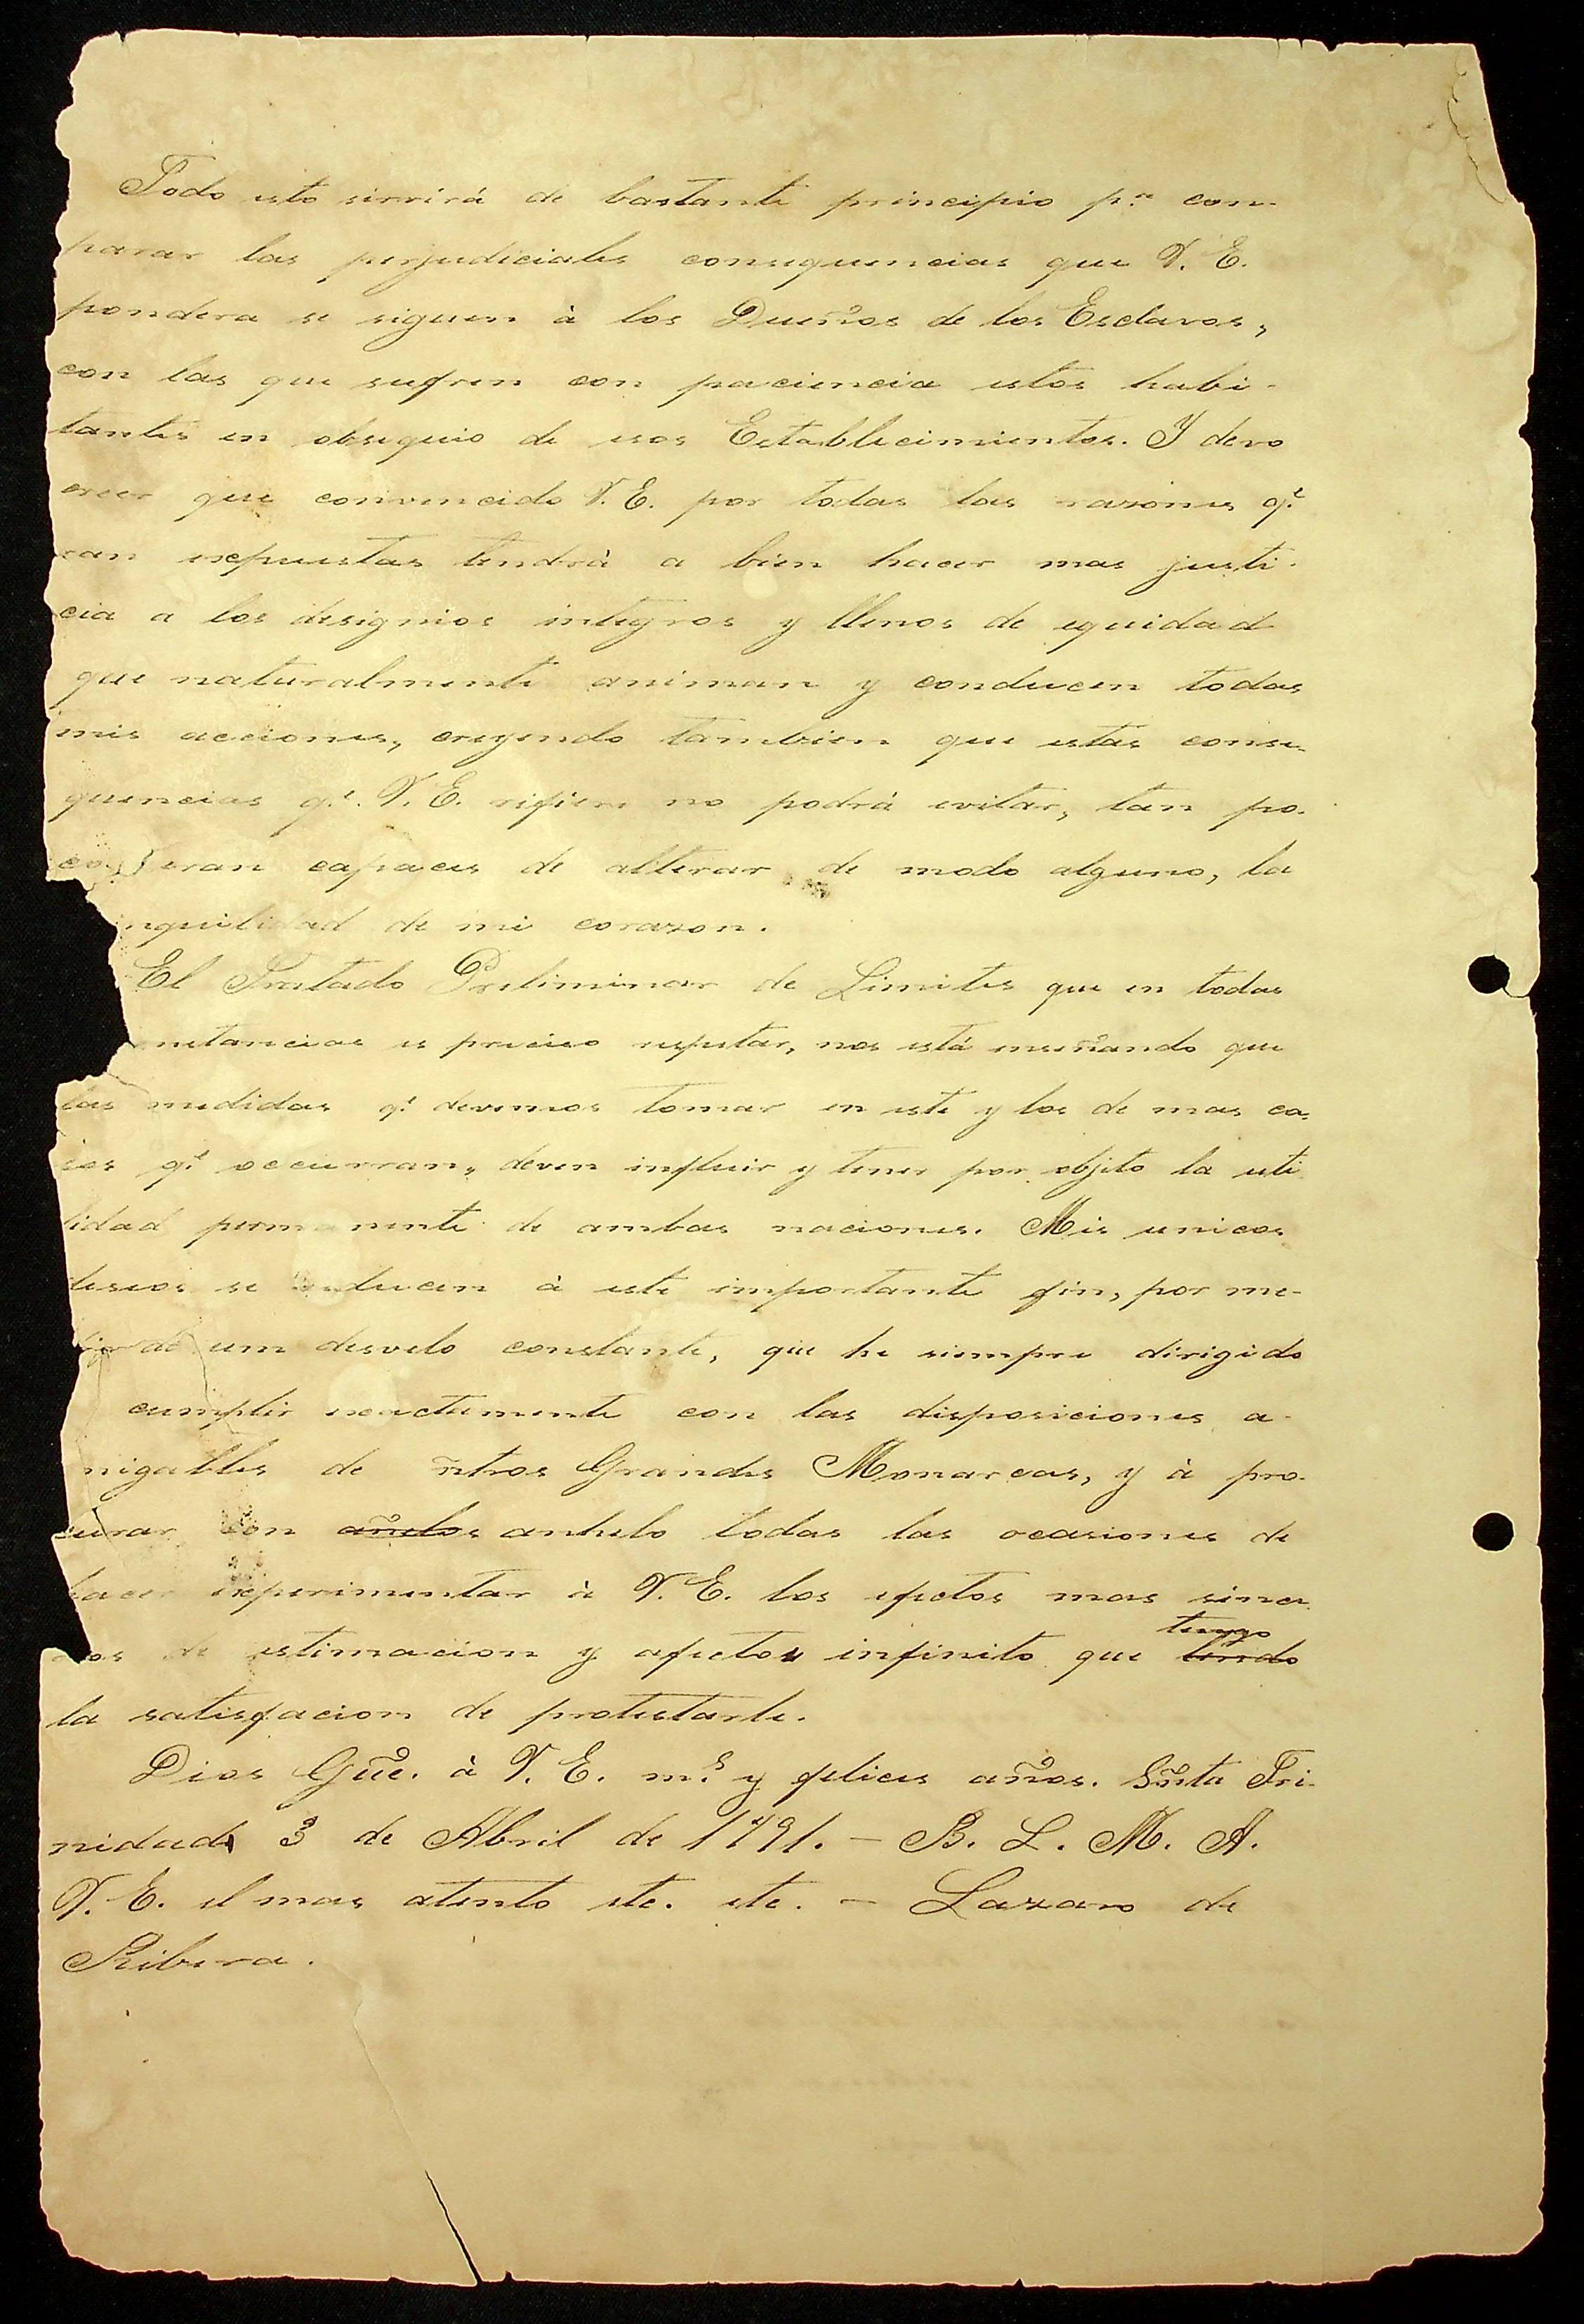 Todo esto sirvirá de bastante principio p.ª con-
parar las perjudiciales consequencias que V. E.
pondera se siguen à los Dueños de los Esclavos,
con las que sufren con paciencia estos habi-
tantes en obsequio de esos Establecimientos. Y devo
creer que convencido V. E. por todas las razones q.e
van expuestas tendrà a bien hacer mas justi-
cia a los designios integros y llenos de equidad
que naturalmente animan y conducen todas
mis acciones, creyendo tambien que estas conse-
quencias q.e V. E. rifiere no podrá evitar, tan po-
co seran capaces de alterar de modo alguno, la
nquilidad de mi corazon.
El Tratado Preliminar de Limites que en todas
nstancias es preciso respetar, nos está enseñando que
las medidas q.e devemos tomar en este y los de mas ca-
sos q.e occurran, deven influir y tener por objeto la uti
lidad permanente de ambas naciones. Mis unicos
deseos se conducen à este importante fin, por me-
dio de um desvelo constante, que he siempre dirigido
cumplir exactamente con las disposiciones a-
migables de ñtros Grandes Monarcas, y à pro-
curar con añelos anhelo todas las ocasiones de
hacer experimentar à V. E. los efectos mas since
ros de estimacion y afectos infinito que tendo tengo
la satisfacion de protestarle.
Dios Gũe. à V. E. m.s y felices años. Sñta Tri-
nidad 3 de Abril de 1791. - B. L. M. A.
V. E. el mas atento etc. etc. - Lazaro de
Ribera.